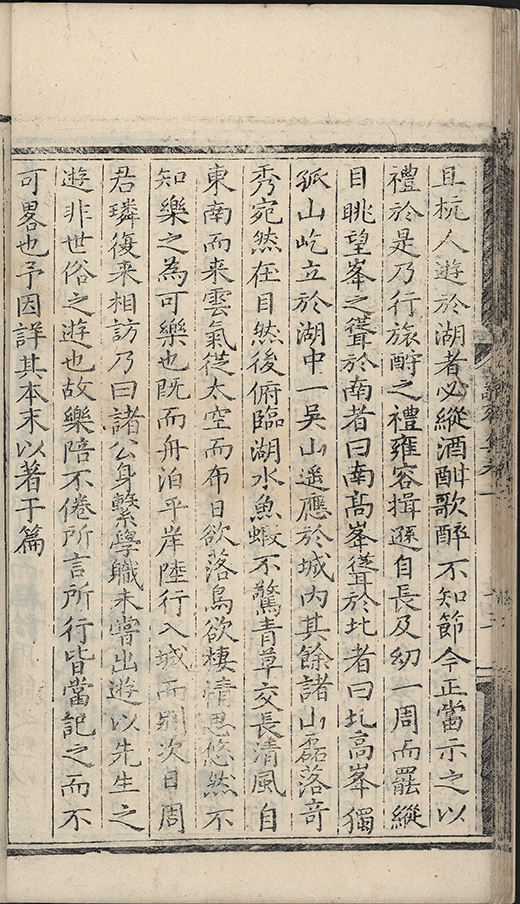 且杭人遊於湖者必縱酒酣歌醉不知節今正當示之以
禮於是乃行旅酧之禮雍容揖遜自長及幼一周而罷縱
目眺望峯之聳於南者曰南高峯聳於北者曰北高峯獨
孤山屹立於湖中一吳山遥應於城内其餘諸山磊落竒
秀宛然在目然後俯臨湖水魚蝦不驚青草交長清風自
東南而来雲氣從太空而布日欲落鳥欲棲情思悠然不
知樂之為可樂也既而舟泊平岸陸行入城而别次日周
君璘復来相訪乃曰諸公身繫學職未嘗出遊以先生之
遊非世俗之遊也故樂陪不倦所言所行皆當記之而不
可畧也予因詳其本末以著于篇